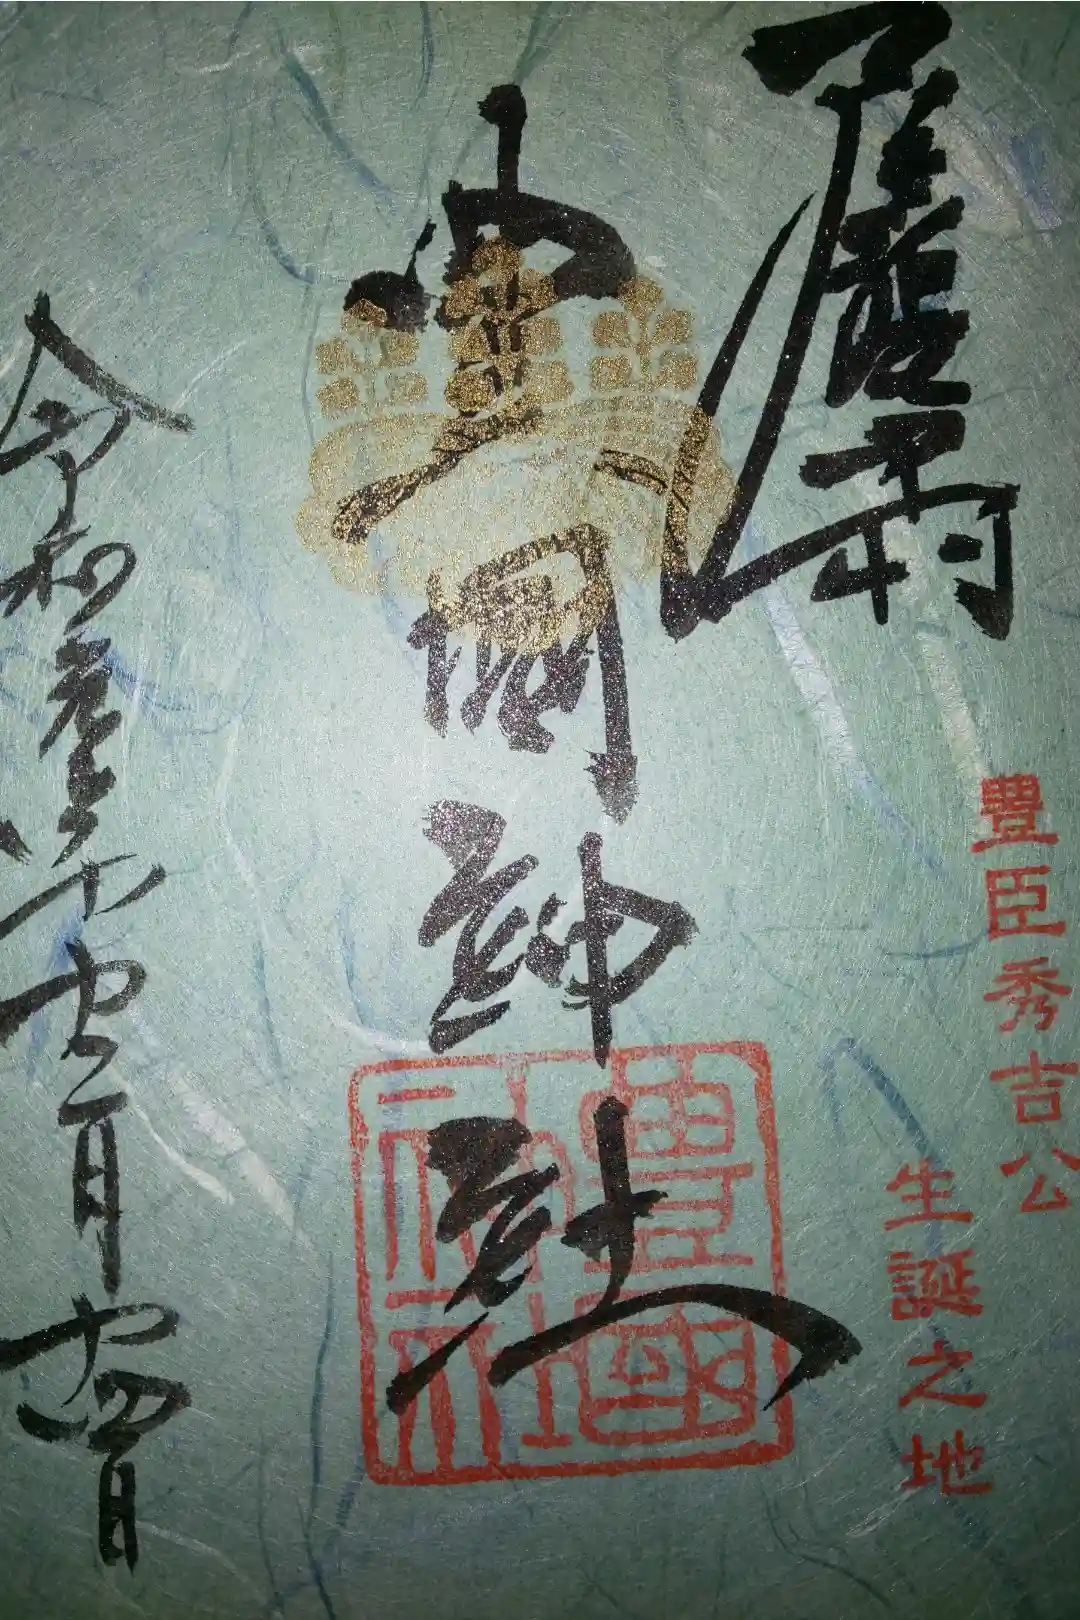 豊臣秀吉公
生誕之地
豊國神社
豊國神社
令和参年十二月十四日